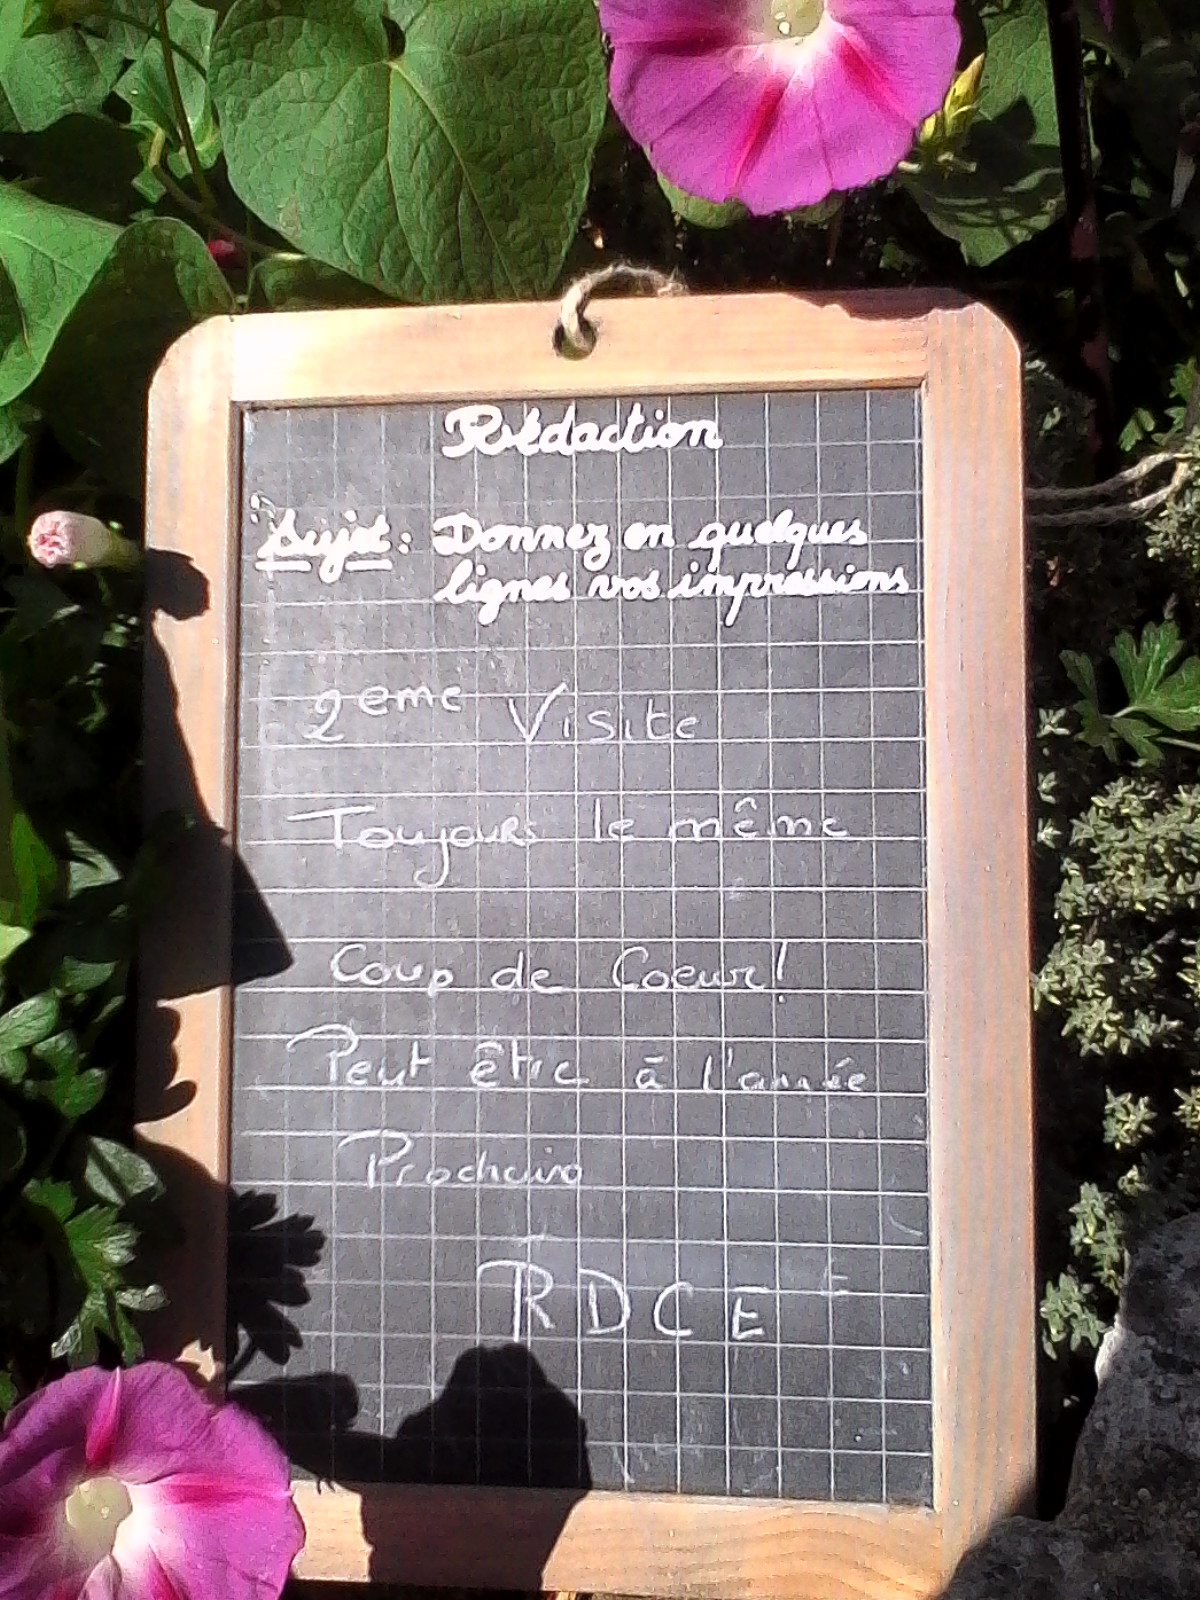 Rédaction
Sujet : Donnez en quelques
lignes vos impressions
2eme Visite
Toujours le même
Coup de Coeur!
Peut être à l'année
Prochaine
RDCE